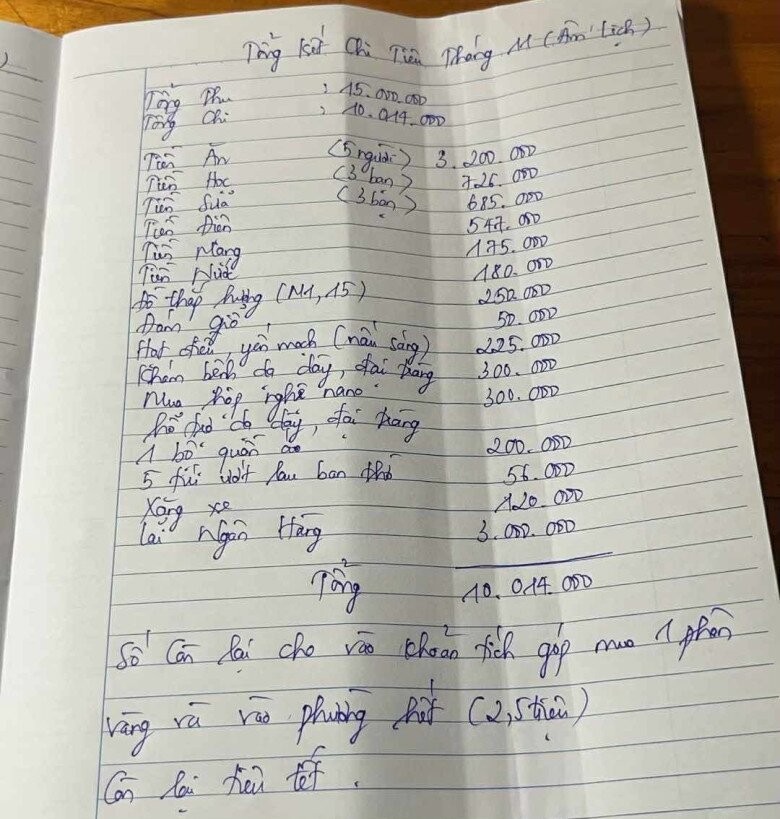 Tổng kết Chi Tiêu Tháng 11 (Âm lịch)
Tổng Thu : 15.000.000
Tổng Chi : 10.014.000
Tiền Ăn (5 người) 3.200.000
Tiền Học (3 bạn) 726.000
Tiền Sữa (3 bạn) 685.000
Tiền Điện 547.000
Tiền Mạng 175.000
Tiền Nước 180.000
Đồ thắp hương (M1, 15) 250.000
Đám giỗ 50.000
Hạt điều, yến mạch (nấu sáng) 225.000
Khám bệnh dạ dày, đại tràng 300.000
Mua hộp nghệ nano 300.000
hỗ trợ dạ dày, đại tràng
1 bộ quần áo 200.000
5 túi ướt lau ban thờ 56.000
Xăng xe 120.000
Lãi Ngân Hàng 3.000.000
Tổng 10.014.000
Số còn lại cho vào khoản tích góp mua 1 phân
vàng và vào phường hết (2,5 triệu)
Còn lại tiêu tết.